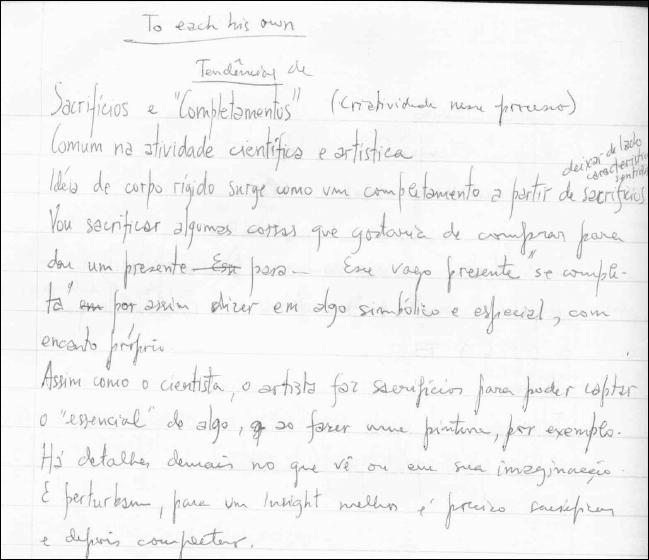 To each his own
Tendências de
Sacrifícios e "Completamentos" (Criatividade nesse processo)
Comum na atividade científica e artística
deixar de lado
característica
sentidos
Idéia de corpo rígido surge como um completamento a partir de sacrifícios
Vou sacrificar algumas coisas que gostaria de comprar para
dar um presente para — Esse vago presente "se comple-
ta" por assim dizer em algo simbólico e especial, com
encanto próprio.
Assim como o cientista, o artista faz sacrifícios para poder captar
o "essencial" de algo, ao fazer uma pintura, por exemplo.
Há detalhes demais no que vê ou em sua imaginação.
E perturbam, para um Insight melhor é preciso sacrificar
e depois completar.